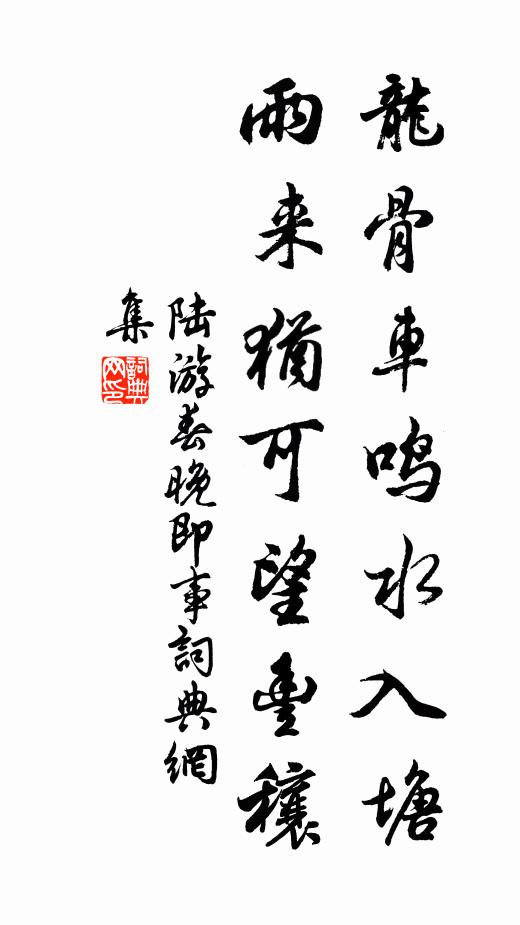 龍骨車鸣水入塘
雨来猶可望豊穰
陆游春晚即事詞典網
集
詞典网印